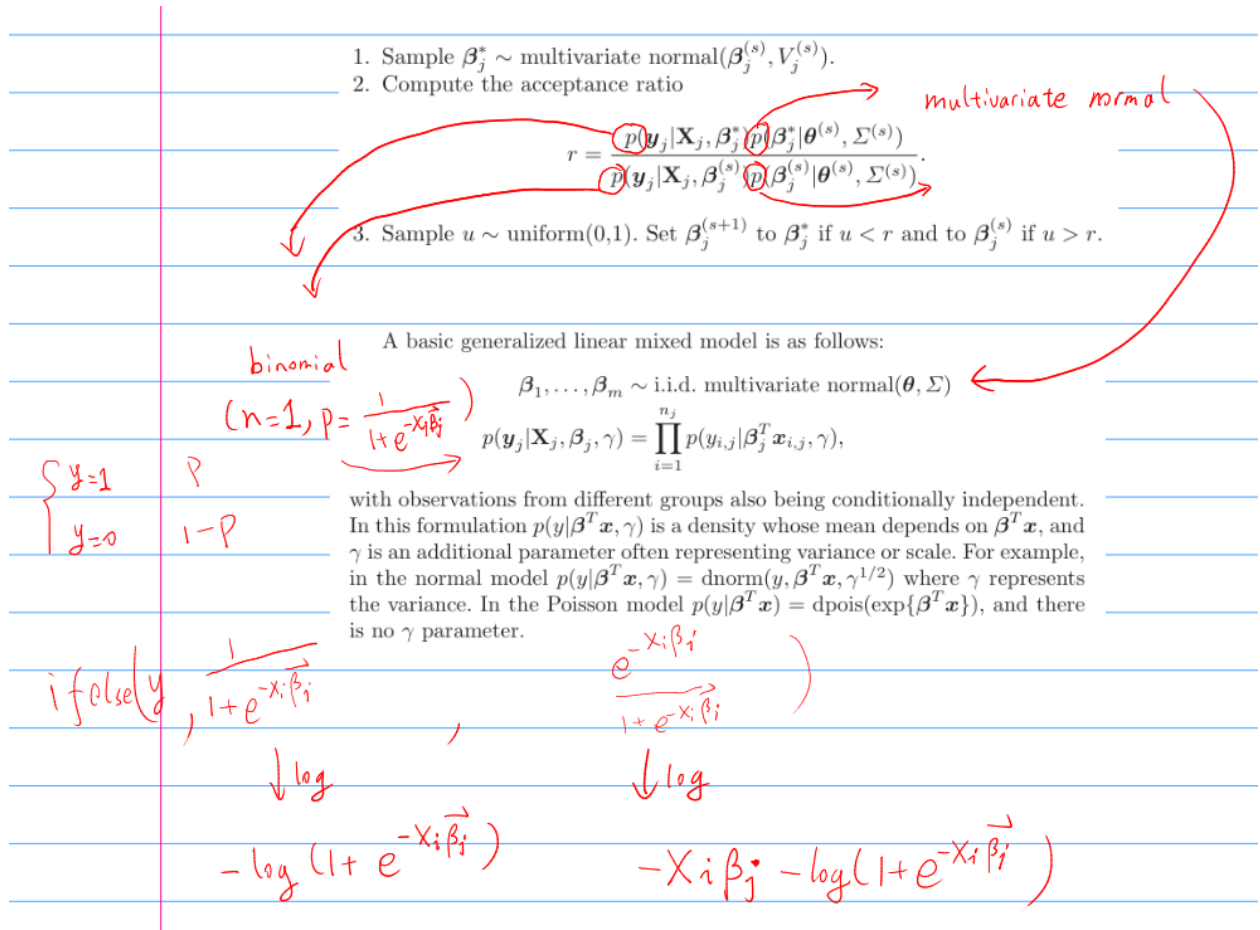 1. Sample β*_j ∼ multivariate normal(β_j^(s), V_j^(s)).
2. Compute the acceptance ratio
multivariate normal
r = p(y_j|X_j, β*_j)p(β*_j|θ^(s), Σ^(s)) / p(y_j|X_j, β_j^(s))p(β_j^(s)|θ^(s), Σ^(s)).
3. Sample u ∼ uniform(0,1). Set β_j^(s+1) to β*_j if u < r and to β_j^(s) if u > r.
A basic generalized linear mixed model is as follows:
binomial
β_1, . . . , β_m ∼ i.i.d. multivariate normal(θ, Σ)
(n=1, p= 1/(1+e^(-X_i β⃗_j)))
p(y_j|X_j, β_j, γ) = ∏_{i=1}^{n_j} p(y_{i,j}|β_j^T x_{i,j}, γ),
{ y=1 P
y=0 1-P
with observations from different groups also being conditionally independent.
In this formulation p(y|β^T x, γ) is a density whose mean depends on β^T x, and
γ is an additional parameter often representing variance or scale. For example,
in the normal model p(y|β^T x, γ) = dnorm(y, β^T x, γ^{1/2}) where γ represents
the variance. In the Poisson model p(y|β^T x) = dpois(exp{β^T x}), and there
is no γ parameter.
ifelse(y, 1/(1+e^(-X_i β⃗_j)), e^(-X_i β_j)/(1+e^(-X_i β⃗_j)))
↓log ↓log
-log(1+e^(-X_i β⃗_j)) -X_i β_j -log(1+e^(-X_i β⃗_j))